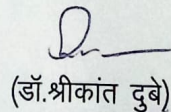 (डॉ.श्रीकांत दुबे)